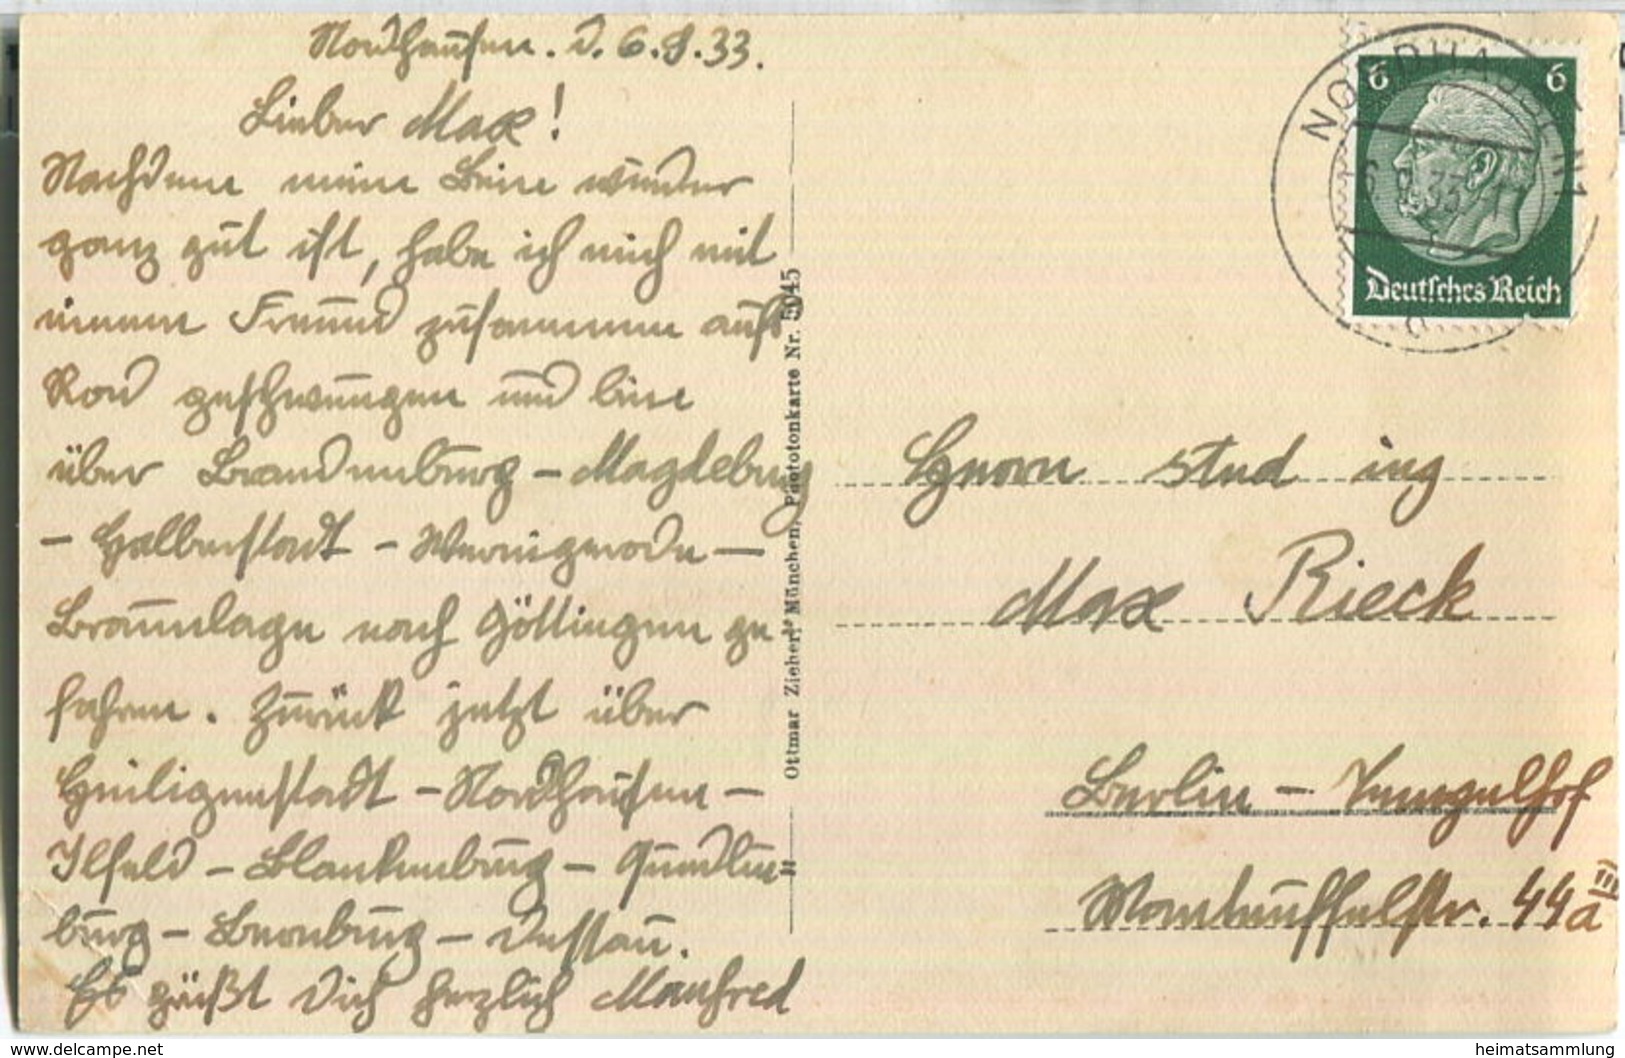 Nordhausen. d. 6.8.33.
Lieber Max!
Nachdem meine Beine wieder
ganz gut ist, habe ich mich mit
einem Freund zusammen aufs
Rad geschwungen und bin
über Brandenburg – Magdeburg
– Halberstadt – Wernigerode –
Braunlage nach Göttingen ge-
fahren. Zurück jetzt über
Heiligenstadt – Nordhausen –
Ilfeld – Blankenburg – Quedlin=
burg – Bernburg – Dessau.
Es grüßt Dich herzlich Manfred
Ottmar Zieher, München, Phototonkarte Nr. 5045
6 6
Deutsches Reich
Herrn stud ing
Max Rieck
Berlin – Tempelhof
Manteuffelstr. 44a III
www.delcampe.net
heimatsammlung